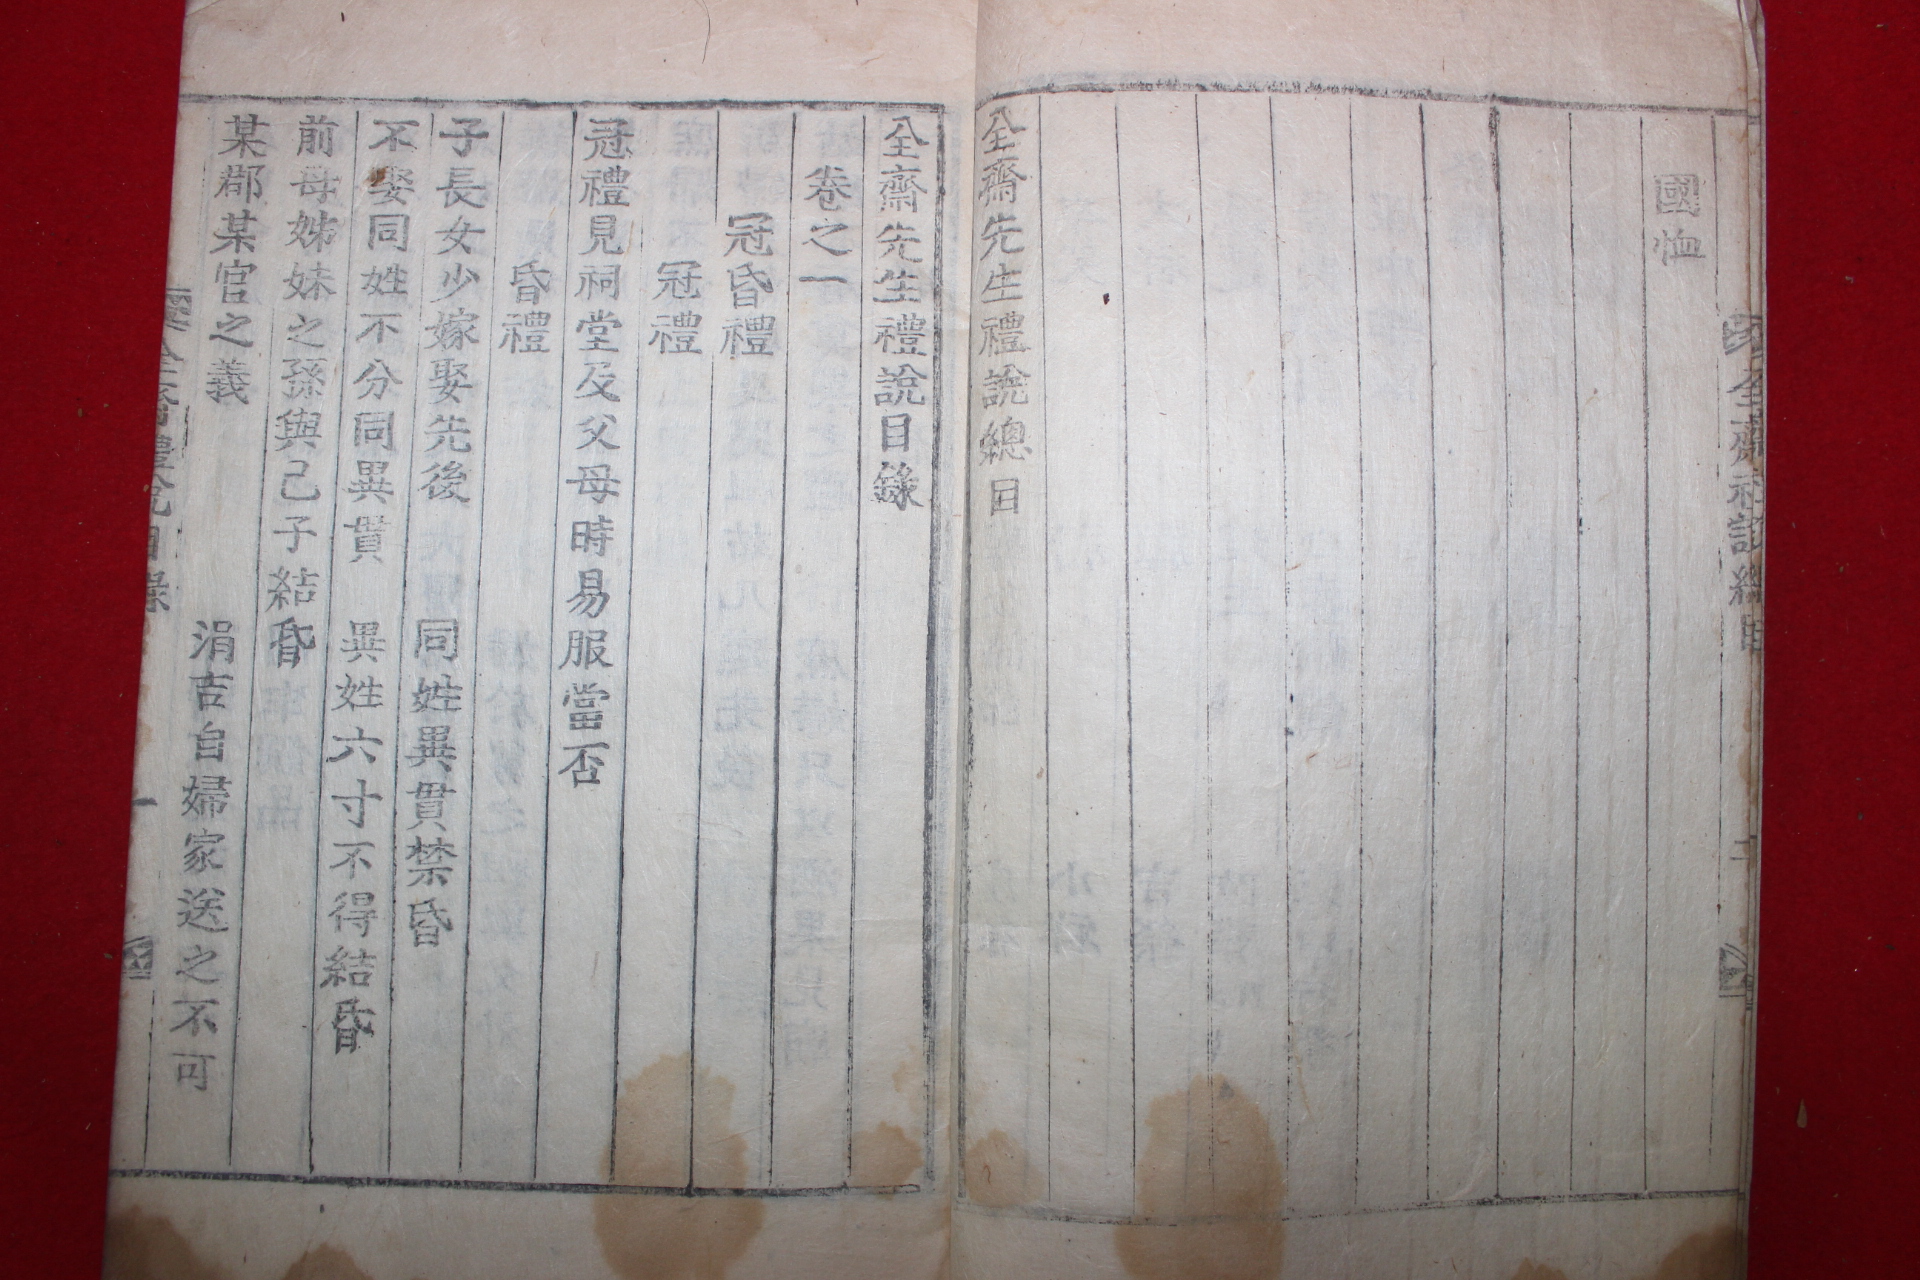 國恤
全齋先生禮說總目
全齋先生禮說目錄
卷之一
冠昏禮
冠禮
冠禮見祠堂及父母時易服當否
昏禮
子長女少嫁娶先後 同姓異貫禁昏
不娶同姓不分同異貫 異姓六寸不得結昏
前母姊妹之孫與己子結昏
某郡某官之義 涓吉自婦家送之不可
全齋禮說目錄 一